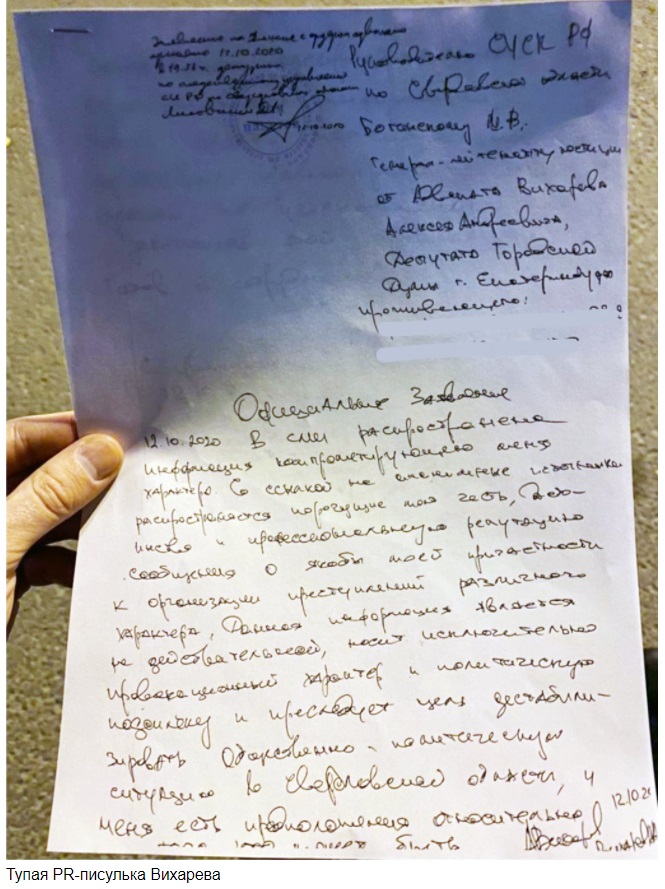 Заявление на личное
принято 12.10.2020
в 19.
по
СК РФ
12.10.2020
Руководителю СУ СК РФ
по Свердловской области
Богданскому М.В.
Генерал-лейтенанту юстиции
от Адвоката Вихарева
Алексея Андреевича,
Депутата Городской
Думы г. Екатеринбурга
проживающего:
Официальное Заявление
12.10.2020 В сми распространена
информация компрометирующего меня
характера. Со ссылкой на анонимные источники
распространяются порочащие мою честь, дос-
инства и профессиональную репутацию
сообщения о якобы моей причастности
к организации преступлений различного
характера, Данная информация является
не действительной, носит исключительно
провокационный характер и политическую
подоплёку и преследует цель дестабили-
зировать Общественно-политическую
ситуацию в Свердловской области, у
меня есть предположения относительно
12.10.20
Вихарев
Тупая PR-писулька Вихарева